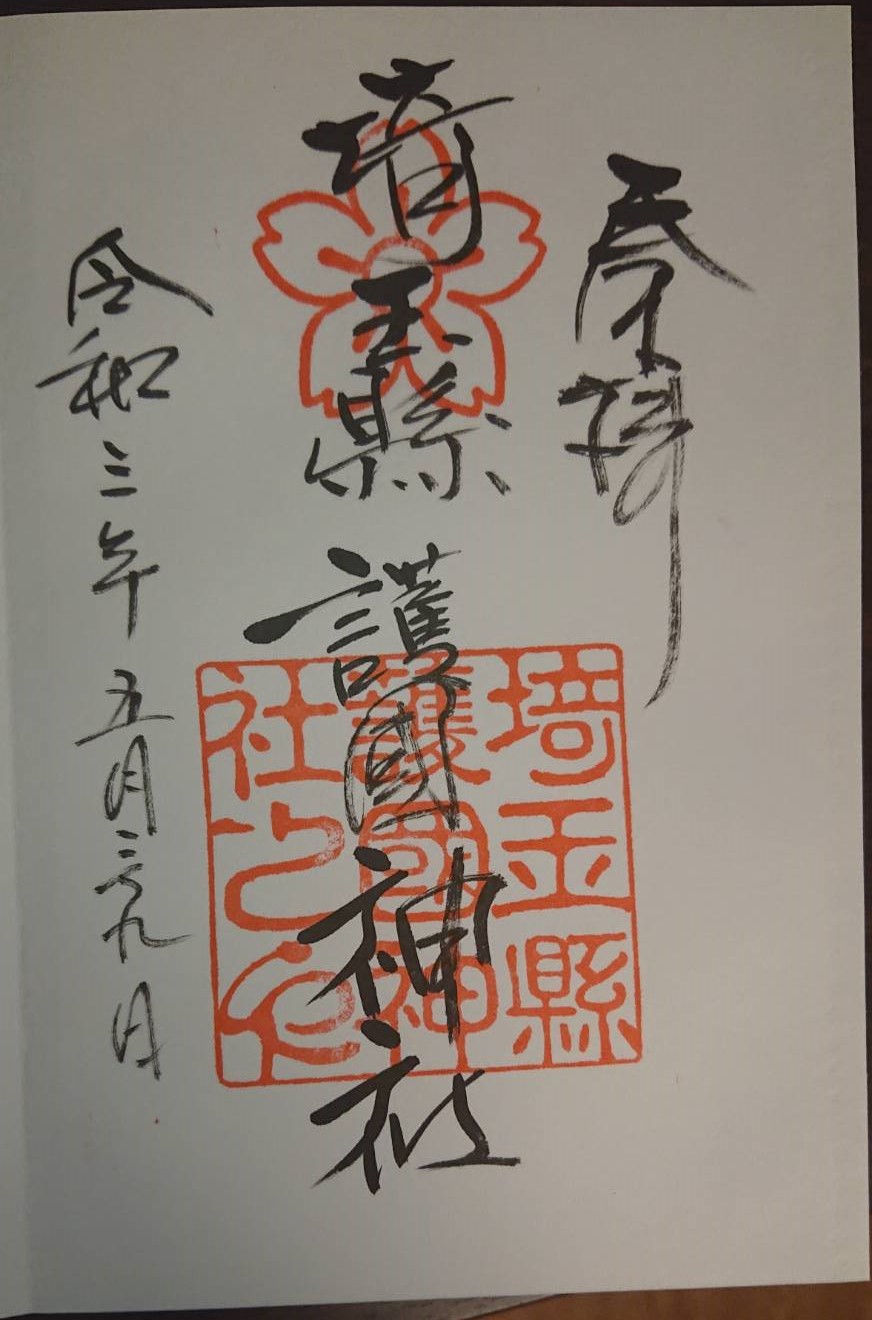 奉拝
埼玉縣護國神社
令和三年五月二十九日
埼玉縣
護國神
社之印